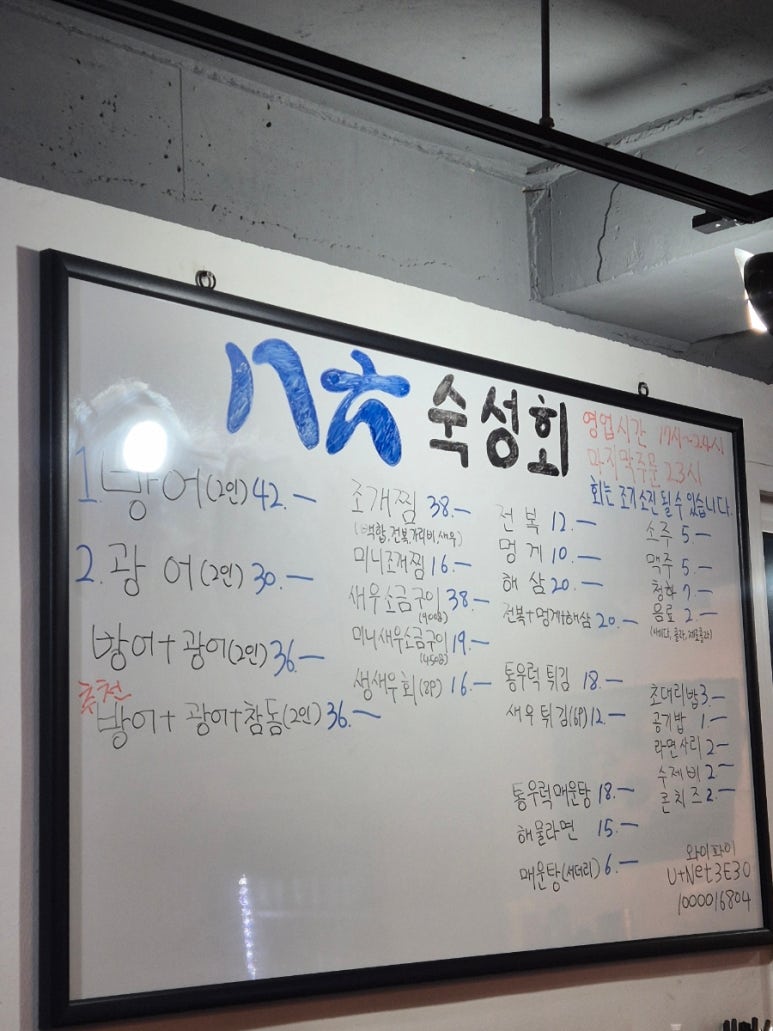 八六 숙성회
영업시간 17시~24시
마지막주문 23시
회는 조기소진 될 수 있습니다.
1. 방어(2인) 42.—
2. 광어(2인) 30.—
방어+광어(2인) 36.—
추천
방어+광어+참돔(2인) 36.—
조개찜 38.—
(백합,전복,가리비,새우)
미니조개찜 16.—
새우소금구이 38.—
(900g)
미니새우소금구이 19.—
(450g)
생새우회(8P) 16.—
전복 12.—
멍게 10.—
해삼 20.—
전복+멍게+해삼 20.—
통우럭 튀김 18.—
새우튀김(6P) 12.—
통우럭매운탕 18.—
해물라면 15.—
매운탕(서더리) 6.—
소주 5.—
맥주 5.—
청하 7.—
음료 2.—
(사이다, 콜라, 제로콜라)
초대리밥 3.—
공기밥 1.—
라면사리 2—
수제비 2.—
콘치즈 2.—
와이파이
U+Net3E30
1000016804